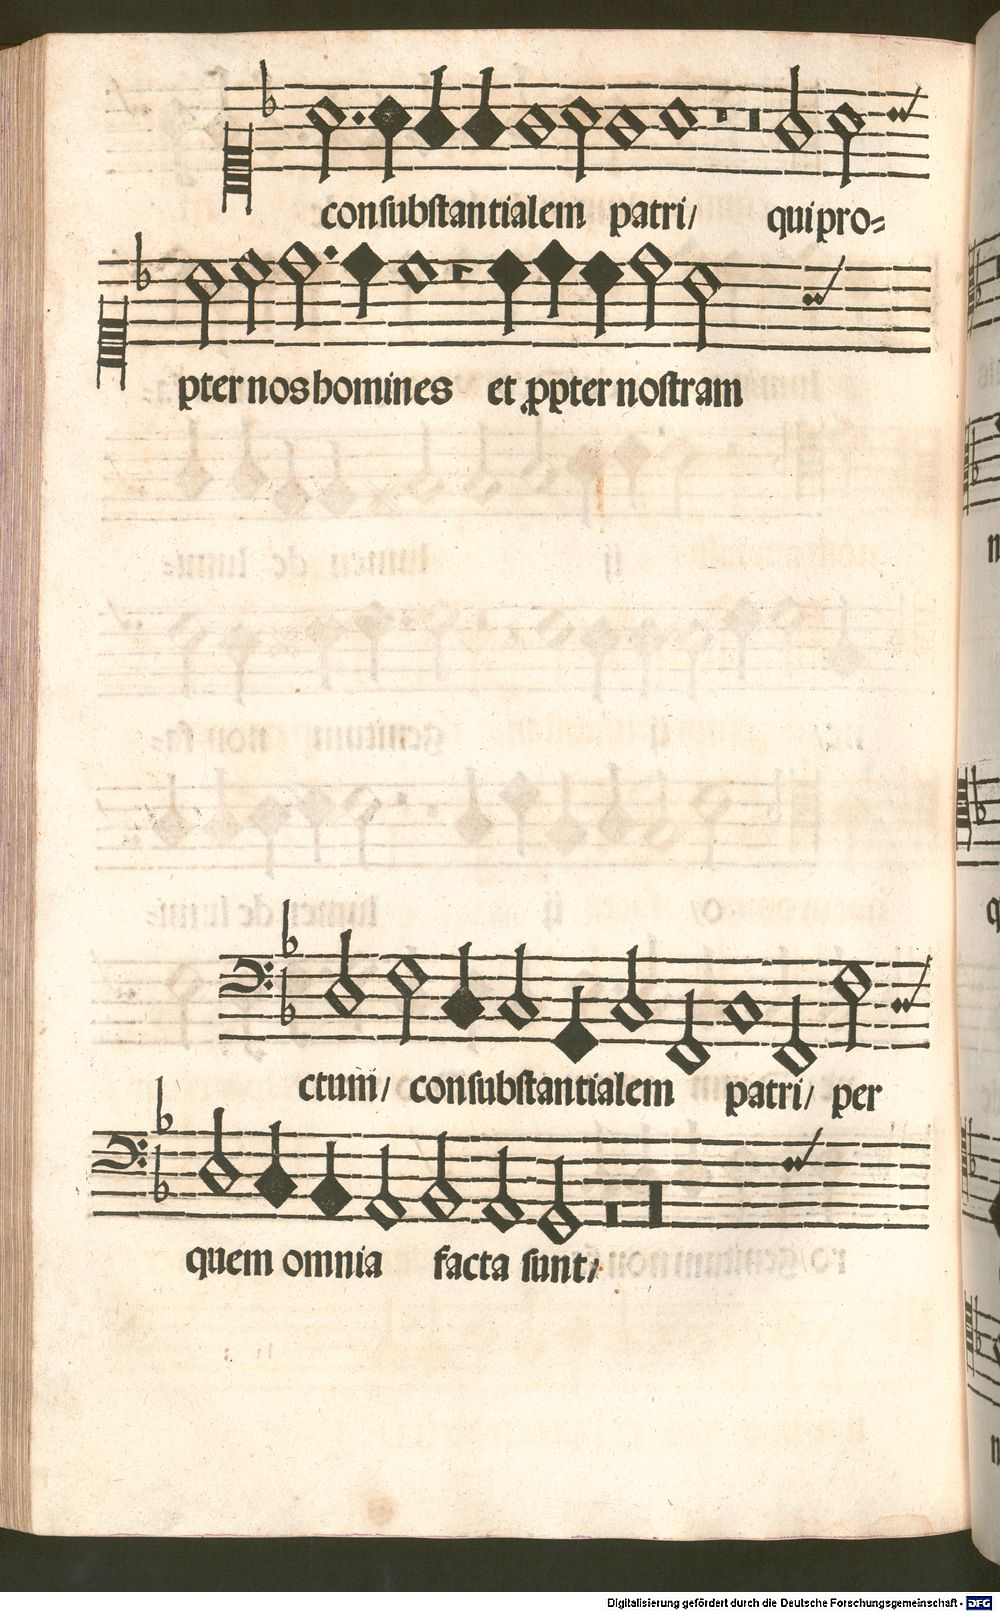 consubstantialem patri/ qui pro=
pter nos homines et ꝓpter nostram
ctum/ consubstantialem patri/ per
quem omnia facta sunt/
Digitalisierung gefördert durch die Deutsche Forschungsgemeinschaft - DFG